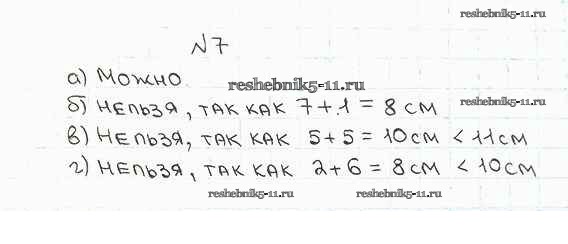 reshebnik5-11.ru
№7
а) Можно.
reshebnik5-11.ru
б) Нельзя, так как 7+1 = 8 см
reshebnik5-11.ru
в) Нельзя, так как 5+5 = 10 см < 11 см
г) Нельзя, так как 2+6 = 8 см < 10 см
reshebnik5-11.ru reshebnik5-11.ru